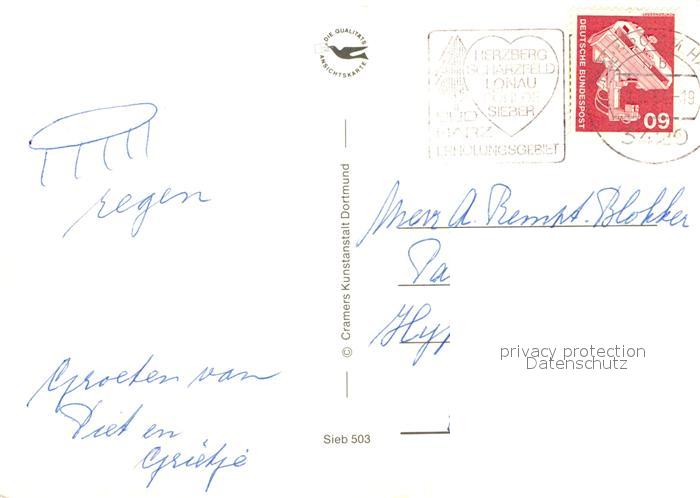 DIE QUALITÄTS
ANSICHTSKARTE
HERZBERG
SCHARZFELD
LONAU
SIEBER
HARZ
ERHOLUNGSGEBIET
DEUTSCHE BUNDESPOST
60
regen
Groeten van
Piet en
Grietje
© Cramers Kunstanstalt Dortmund
Sieb 503
Mevr A. Rempt-Blokker
Pa
Hyp
privacy protection
Datenschutz